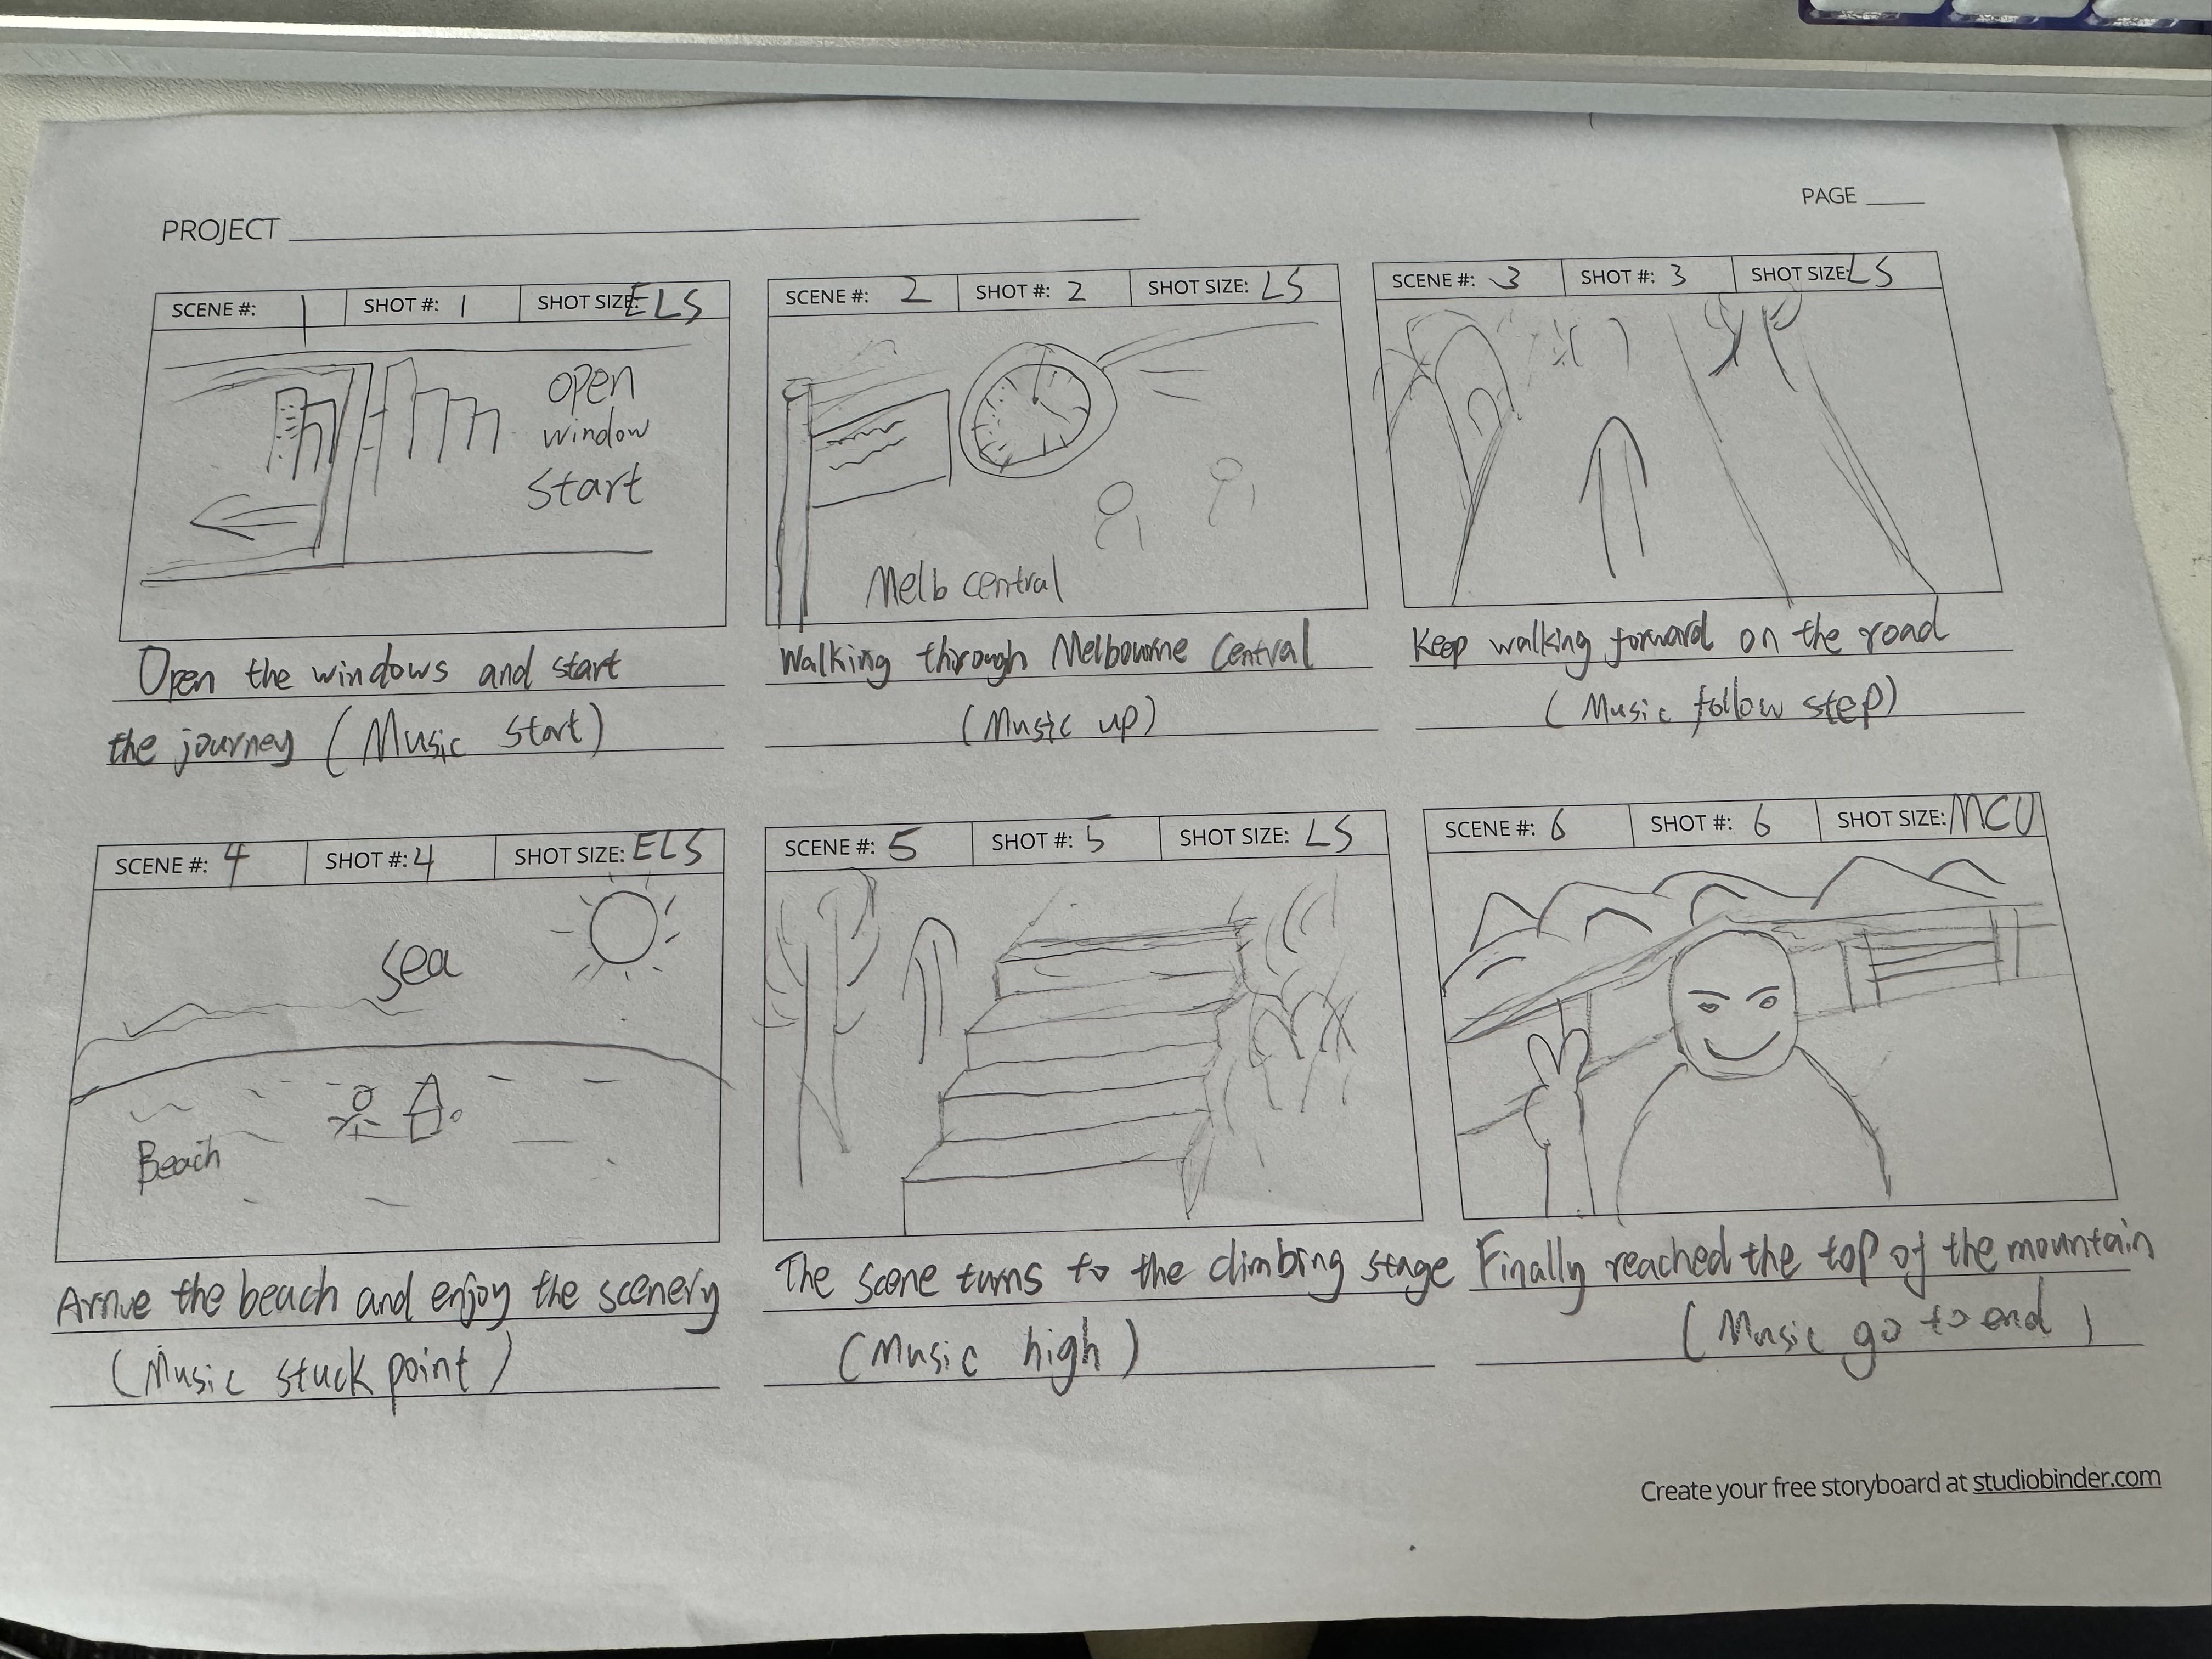 PROJECT
PAGE
SCENE #: 1 SHOT #: 1 SHOT SIZE: ELS
open
window
start
Open the windows and start
the journey (Music start)
SCENE #: 2 SHOT #: 2 SHOT SIZE: LS
Melb central
Walking through Melbourne Central
(Music up)
SCENE #: 3 SHOT #: 3 SHOT SIZE: LS
Keep walking forward on the road
(Music follow step)
SCENE #: 4 SHOT #: 4 SHOT SIZE: ELS
Sea
Beach
Arrive the beach and enjoy the scenery
(Music stuck point)
SCENE #: 5 SHOT #: 5 SHOT SIZE: LS
The scene turns to the climbing stage
(Music high)
SCENE #: 6 SHOT #: 6 SHOT SIZE: MCU
Finally reached the top of the mountain
(Music go to end)
Create your free storyboard at studiobinder.com